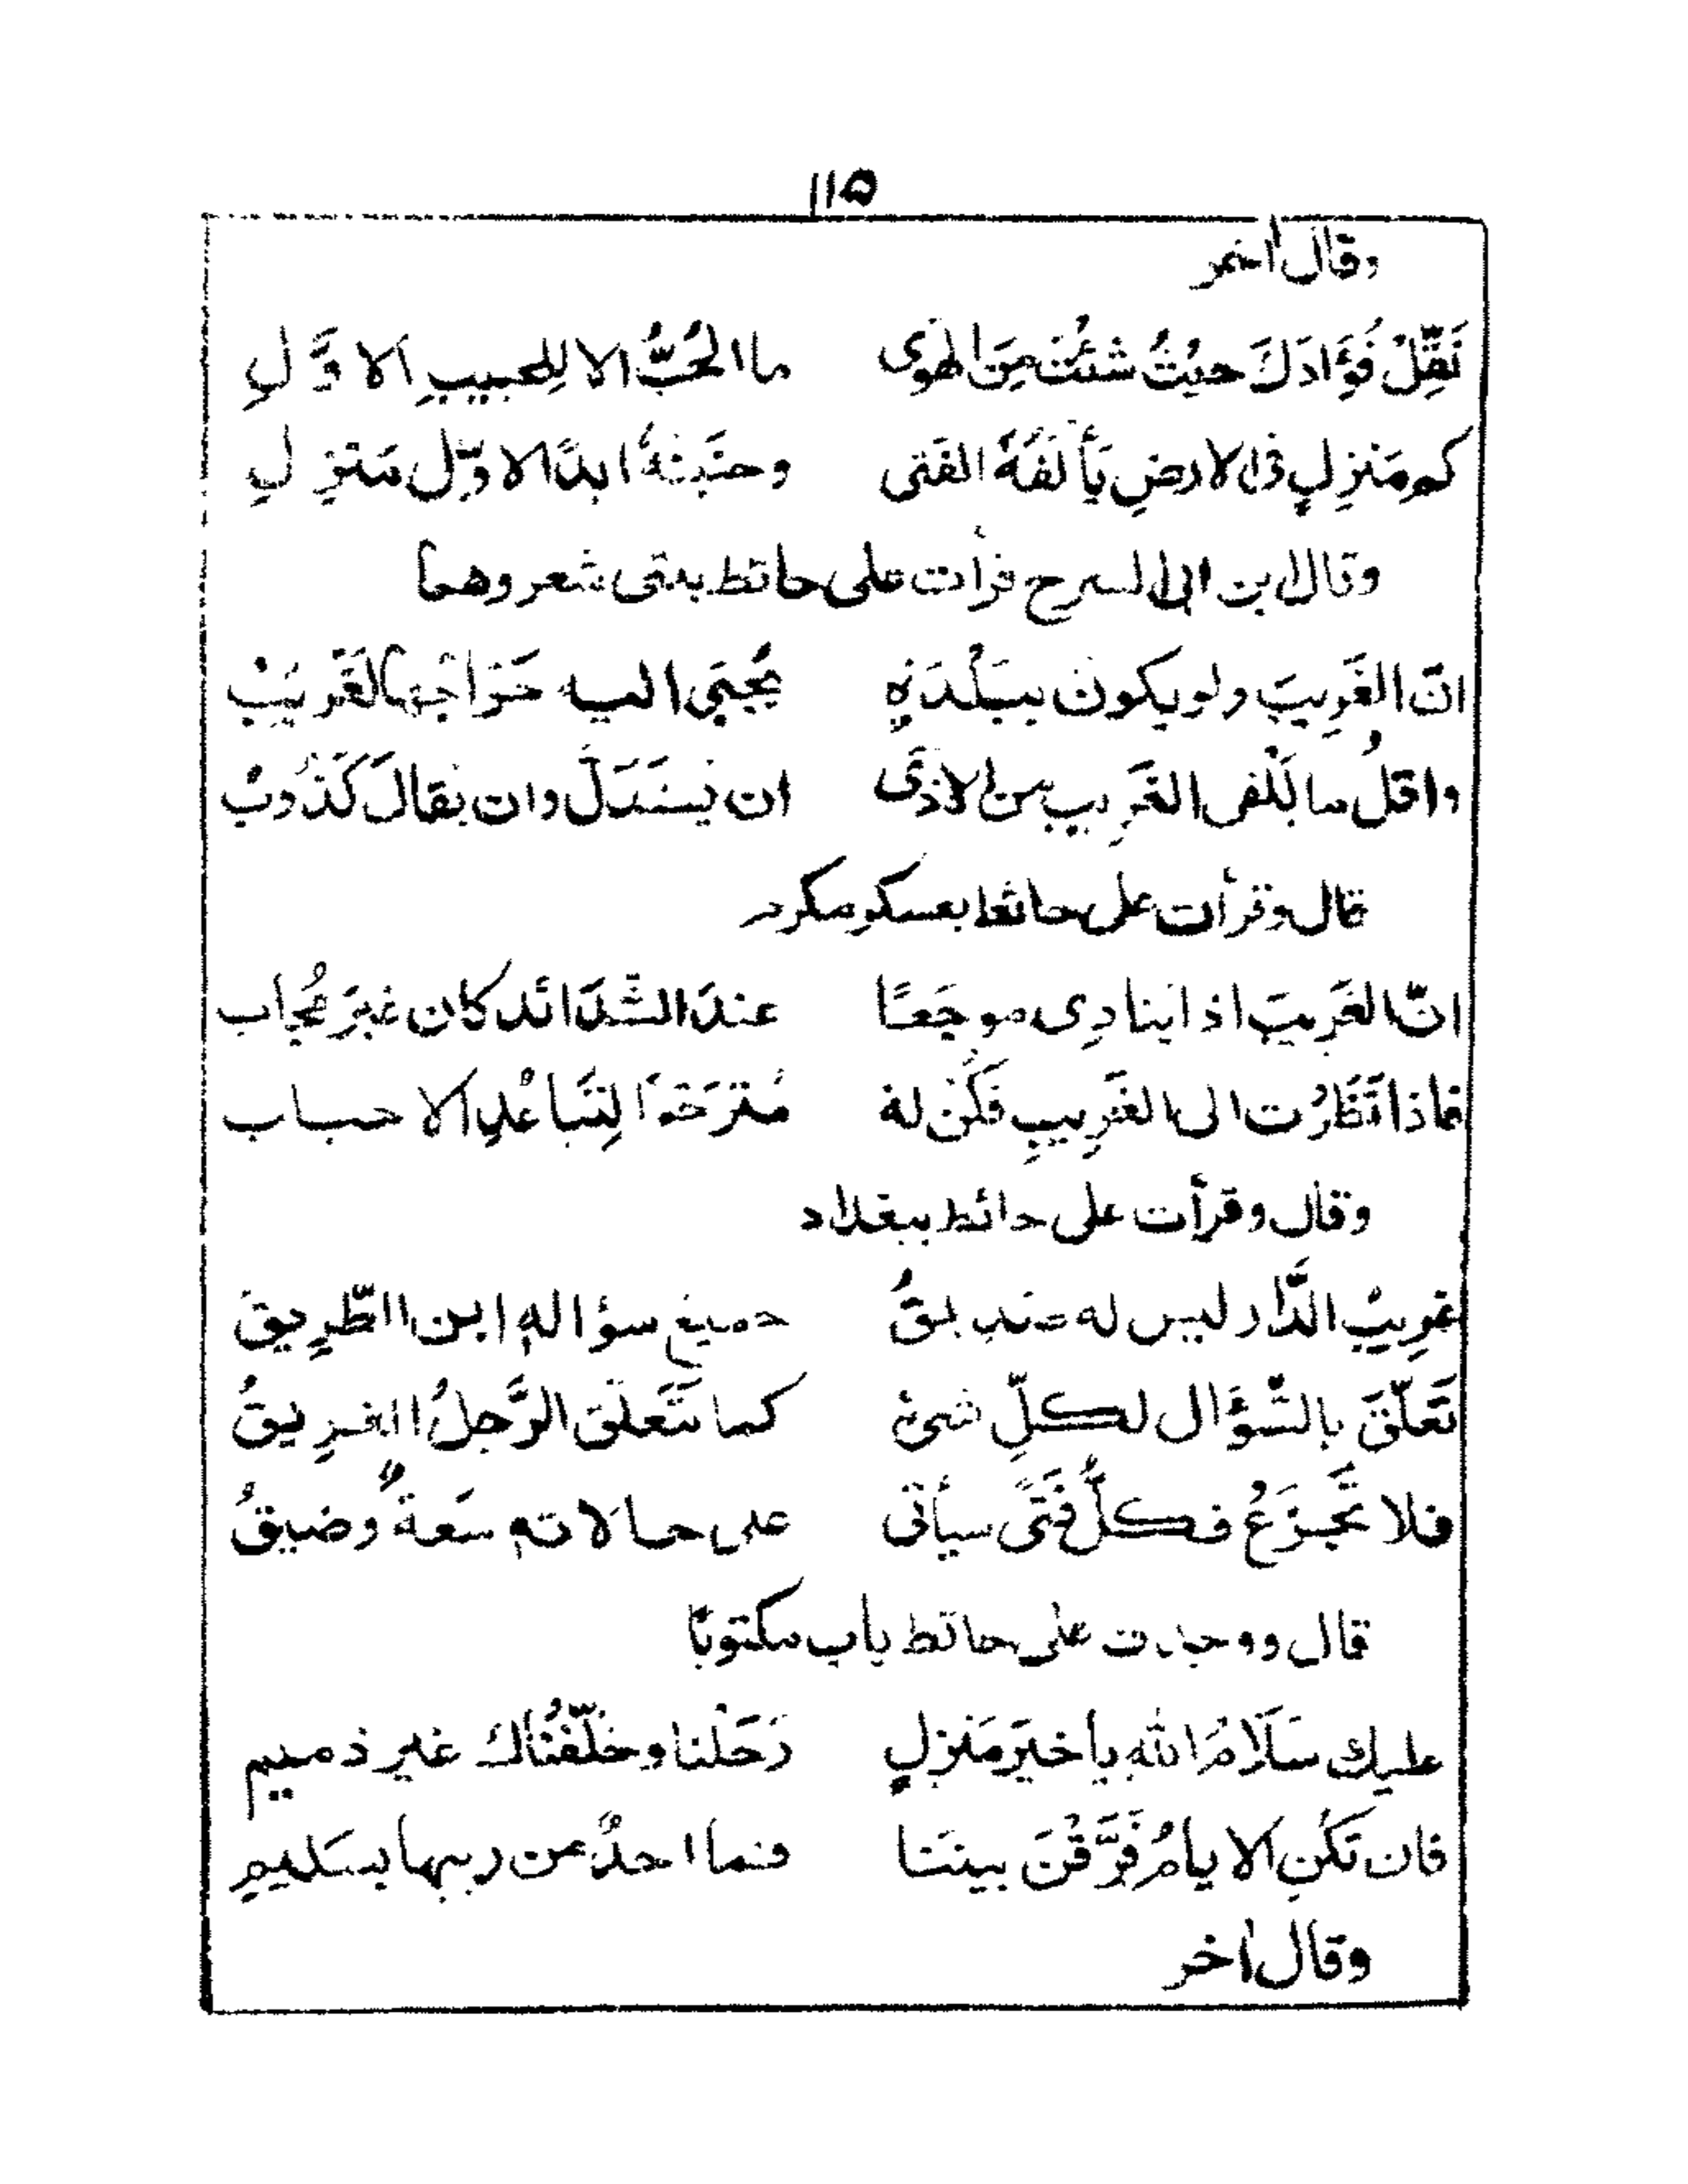 ١١٥
وقال اخر
نَقِّلْ فُؤَادَكَ حيْثُ شئْتَ مِنَ الهَوى ما الحُبُّ الا للحبيبِ الاوَّلِ
كم مَنزِلٍ فى الارضِ يَألَفُهُ الفَتى وحنَينهُ ابدًا لاوّل مَنزِلِ
وقال ابن ابى السرح قرأت على حائط بيتى شعر وهما
انّ الغَرِيبَ ولو يكون ببَلْدَةٍ يُجبَى اليه خَرَاجُها لَغَرِيبُ
واقلُّ ما يَلْقى الغَرِيب من الاذَى ان يُستَذَلَّ وان يُقالَ كَذُوبُ
قال وقرأت على حائط بعسكر مكرم
انّ الغَرِيبَ اذا ينادِى موجَعًا عندَ الشّدَائد كان غيرَ مُجاب
فاذا نَظَرْت الى الغَرِيبِ فَكُنْ له مُترَحّمًا لِتَبَاعُدِ الاحباب
وقال وقرأت على حائط ببغداد
غرِيبُ الدَّار ليس له صَديقُ جميع سؤالهِ اين الطَّرِيقُ
تَعَلّقَ بالسُّؤَال لكلِّ شىءٍ كما يَتَعَلّق الرَّجلُ الغرِيقُ
فلا تَجْزَعْ فكلُّ فَتًى سيأتى على حالاته سَعةٌ وضيقُ
قال ووجدت على حائط باب مكتوبًا
عليك سَلَامُ اللهِ يا خيرَ مَنزِلٍ رَحَلْنا وخَلّفْنَاك غير ذميم
فان تَكُنِ الايامُ فَرَّقْنَ بيننَا فما احدٌ من ريبها بسَليم
وقال اخر